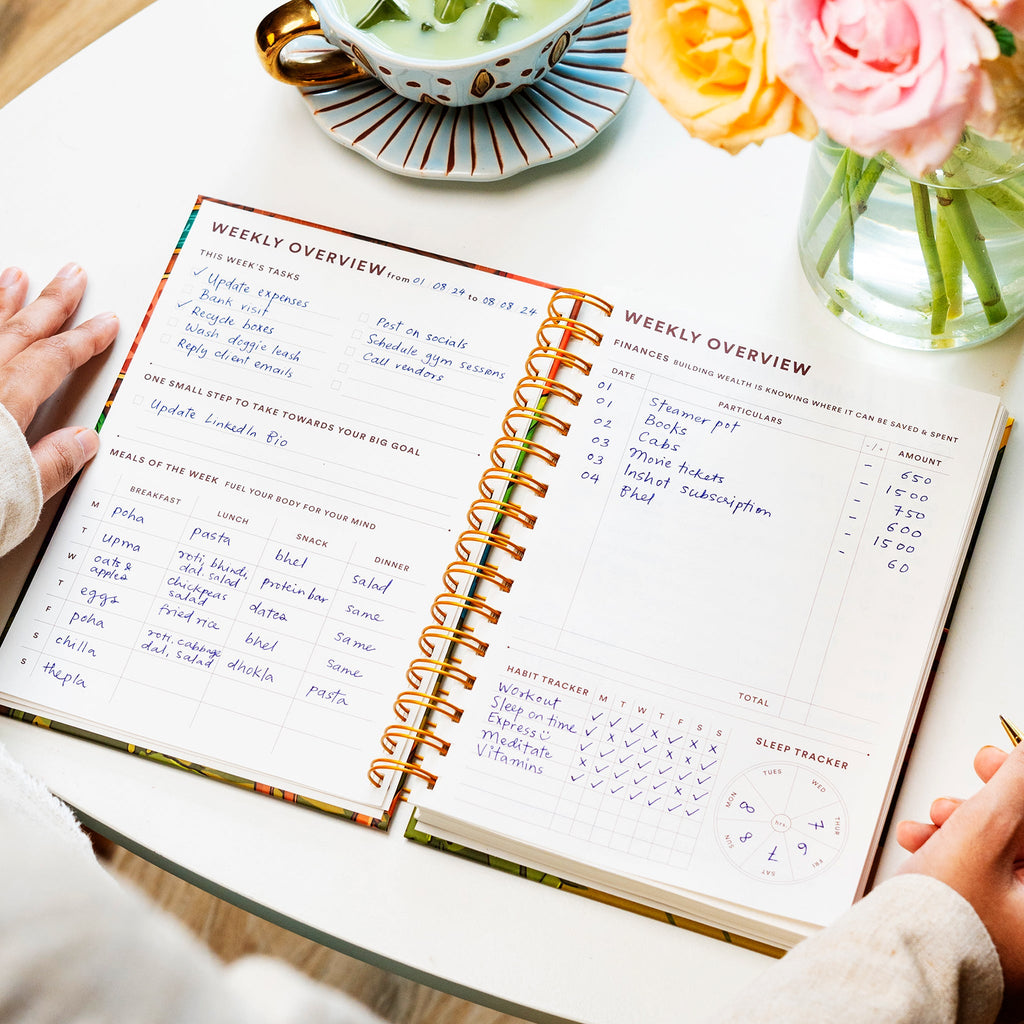 WEEKLY OVERVIEW from 01 08 24 to 08 08 24
THIS WEEK'S TASKS
✓ Update expenses
Bank visit
✓ Recycle boxes
Wash doggie leash
Reply client emails
Post on socials
Schedule gym sessions
Call vendors
ONE SMALL STEP TO TAKE TOWARDS YOUR BIG GOAL
Update LinkedIn Bio
MEALS OF THE WEEK FUEL YOUR BODY FOR YOUR MIND
BREAKFAST LUNCH SNACK DINNER
M poha pasta bhel salad
T upma roti, bhindi, dal, salad protein bar same
W oats & apples chickpeas salad dates same
T eggs fried rice bhel same
F poha roti, cabbage dal, salad dhokla pasta
S chilla
S thepla
WEEKLY OVERVIEW
FINANCES BUILDING WEALTH IS KNOWING WHERE IT CAN BE SAVED & SPENT
DATE PARTICULARS -/+ AMOUNT
01 Steamer pot - 650
01 Books - 1500
02 Cabs - 750
03 Movie tickets - 600
03 Inshot subscription - 1500
04 Bhel - 60
TOTAL
HABIT TRACKER M T W T F S S
Workout
Sleep on time
Express
Meditate
Vitamins
SLEEP TRACKER
MON
TUES
WED
THUR
FRI
SAT
SUN
hrs
8
7
6
7
8